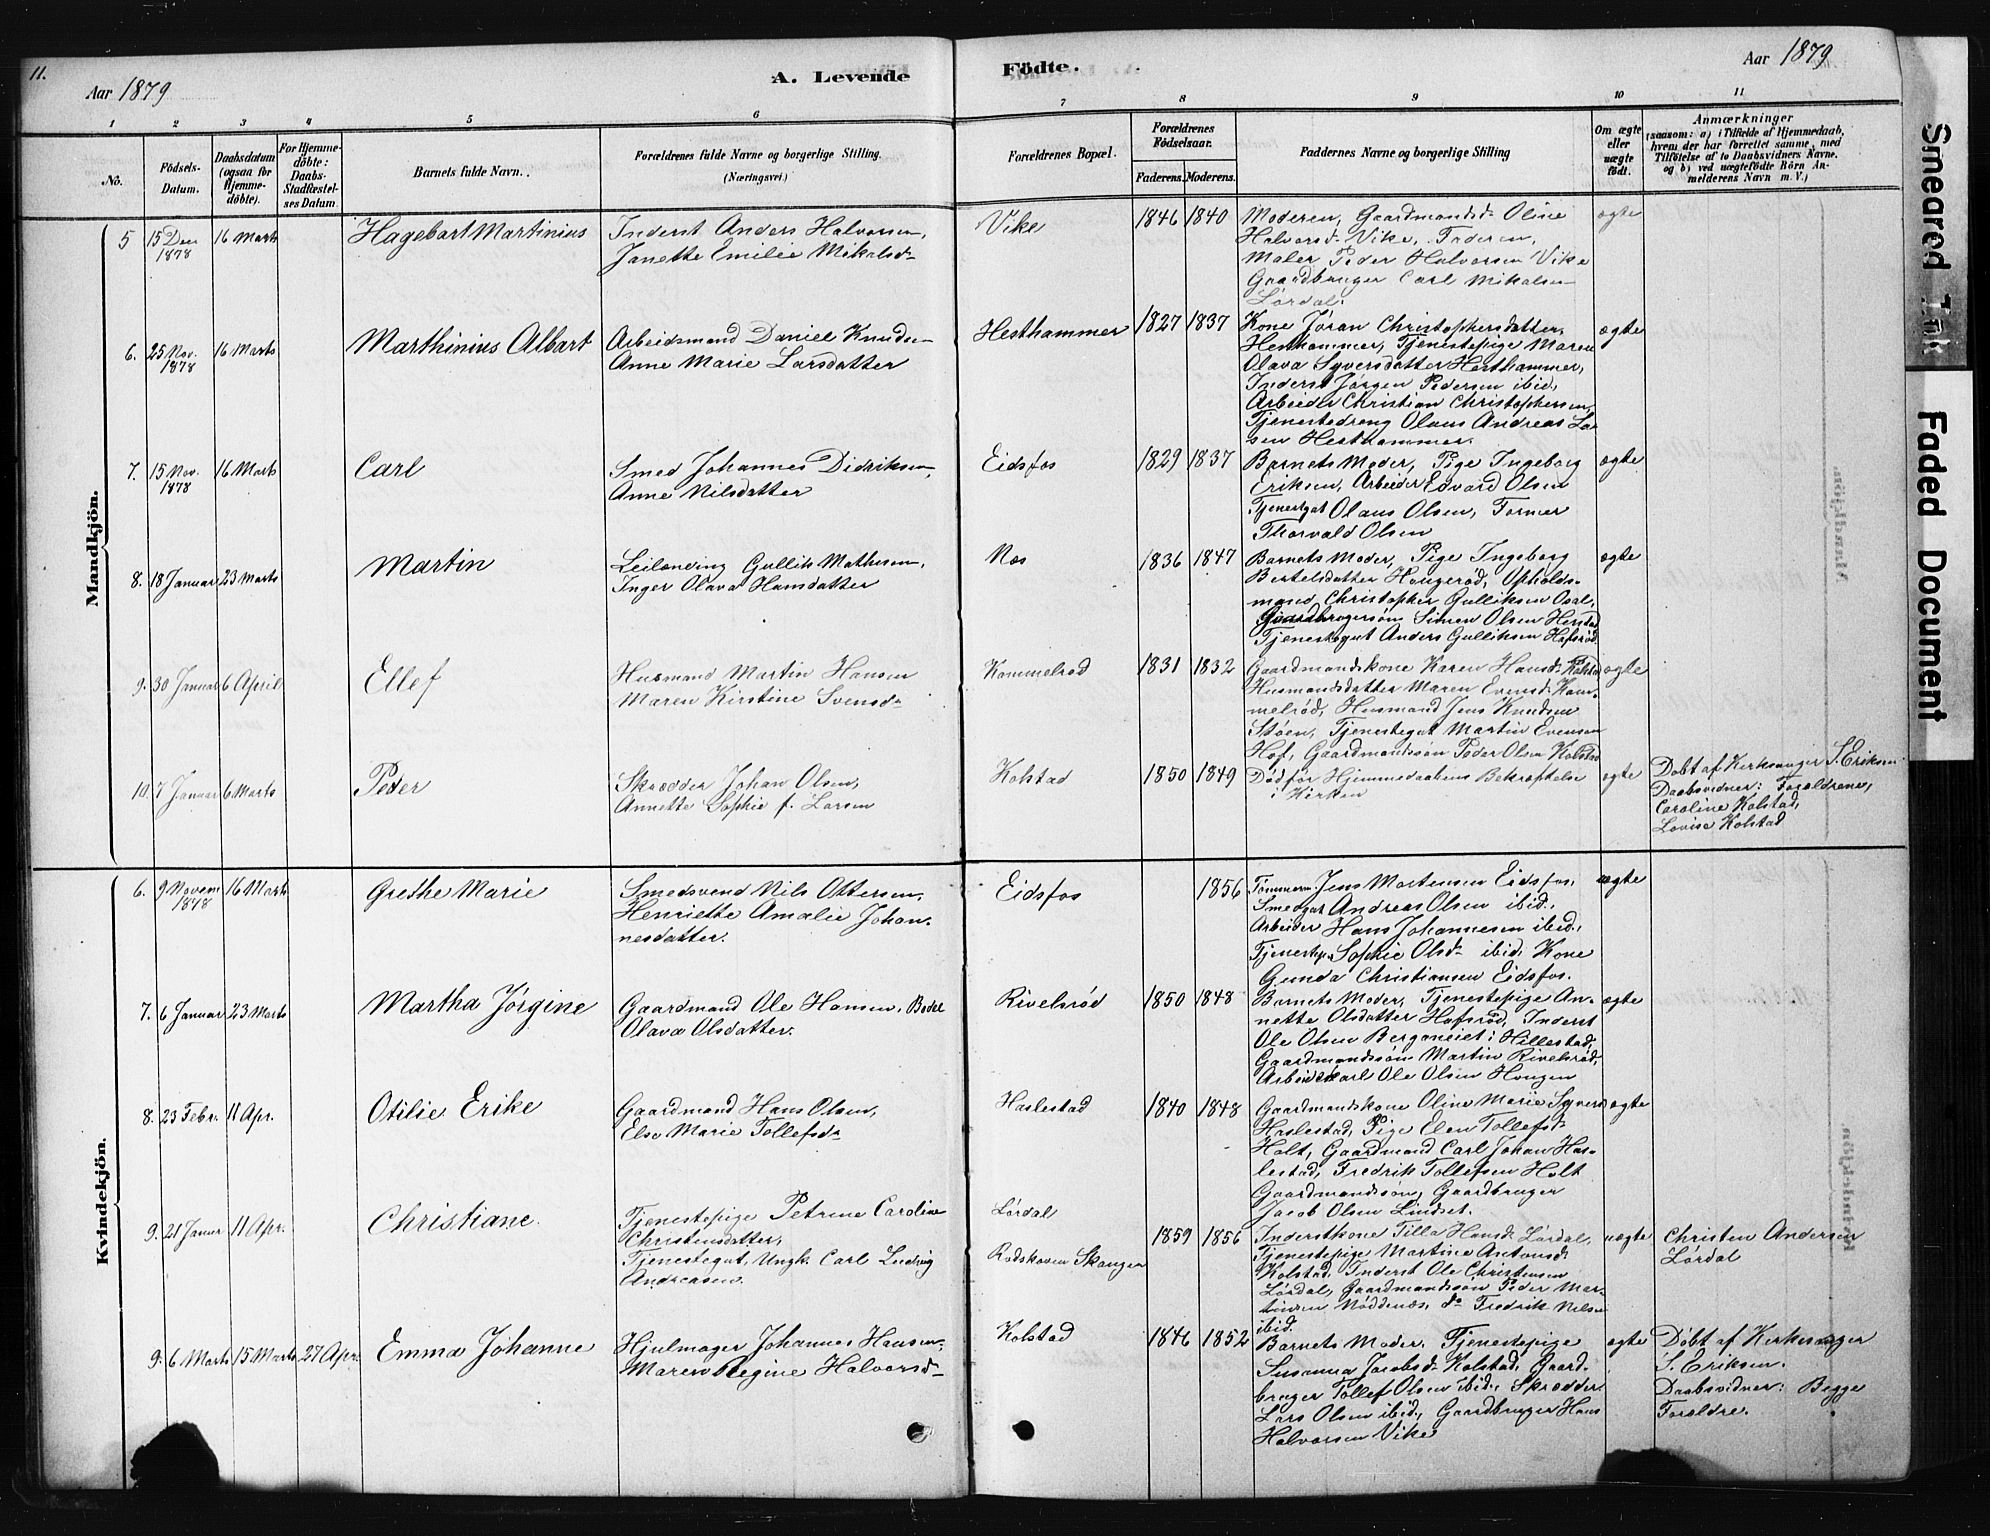 11.
Aar 1879
A. Levende
Födte.
Aar 1879
1 2 3 4 5 6 7 8 9 10 11
No.
Födsels-Datum.
Daabsdatum (ogsaa for Hjemme-döbte).
For Hjemme-döbte: Daabs-Stadfæstel-ses Datum.
Barnets fulde Navn.
Forældrenes fulde Navne og borgerlige Stilling. (Næringsvei.)
Forældrenes Bopæl.
Forældrenes Födselsaar.
Faderens. Moderens.
Faddernes Navne og borgerlige Stilling
Om ægte eller uægte födt.
Anmærkninger
(saasom: a) i Tilfælde af Hjemmedaab,
hvem der har forrettet samme, med
Tilföielse af to Daabsvidners Navne.
og b) ved uægtefödte Börn An-
melderens Navn m. V.)
Mandkjön.
5 15 Dec 1878 16 Marts
Hagebart Martinius
Inderst Anders Halvorsen,
Janette Emilie Mikalsd-
Vike
1846 1840
Moderen, Gaardmandsd- Oline
Halvorsd- Vike, Faderen,
Maler Peder Halvorsen Vike
Gaardbruger Carl Mikalsen
Lørdal.
ægte
6. 25 Nov. 1878 16 Marts
Marthinius Albart
Arbeidsmand Daniel Knudsen
Anne Marie Larsdatter
Hesthammer
1827 1837
Kone Jøran Christophersdatter,
Hesthammer, Tjenestepige Maren
Olava Syversdatter Hesthammer,
Inderst Jørgen Pedersen ibid,
Arbeider Christian Christophersen,
Tjenestedreng Olaus Andreas Lar
sen Hesthammer.
ægte
7. 15 Nov. 1878 16 Marts
Carl
Smed Johannes Didriksen,
Anne Nilsdatter
Eidsfos
1829 1837
Barnets Moder, Pige Ingeborg
Eriksen, Arbeider Edvard Olsen
Tjenestgut Olaus Olsen, Former
Thorvald Olsen
ægte
8. 18 Januar 23 Marts
Martin
Leilending Gullik Mathisen,
Inger Olava Hansdatter
Næs
1836 1847
Barnets Moder, Pige Ingeborg
Bertelsdatter Haugerød, Opholds-
mand Christopher Gulliksen Oxal,
Gaardbrugersøn Simen Olsen Herstad
Tjenestegut Anders Gulliksen Hafsrød
ægte
9. 30 Januar 6 April
Ellef
Husmand Martin Hansen
Maren Kirstine Svensd-
Kommelrød
1831 1832
Gaardmandskone Karen Hansd- Kolstad
Husmandsdatter Maren Evensd- Kom-
melrød, Husmand Jens Knudsen
Støen, Tjenestegut Martin Evensen
Hof, Gaardmandssøn Peder Olsen Kolstad
ægte
10. 7 Januar 6 Marts
Peder
Skrædder Johan Olsen,
Annette Sophie f. Larsen
Kolstad
1850 1849
Død før Hjemmedaabens Bekræftelse
i Kirken
ægte
Døbt af Kirksanger S. Eriksen
Daabsvidner: Forældrene,
Caroline Kolstad,
Lovise Kolstad
Kvindekjön.
6. 9 Novem 1878 16 Marts
Grethe Marie
Smedsvend Nils Ottersen,
Henriette Amalie Johan-
nesdatter.
Eidsfos
1856
Tømmerm Jens Mortensen Eidsfos,
Smedgut Andreas Olsen ibid.,
Arbeider Hans Johannesen ibid.,
Tjenestep. Sophie Olsd- ibid, Kone
Gunda Christiansen Eidsfos.
ægte
7. 6 Januar 23 Marts
Martha Jørgine
Gaardmand Ole Hansen, Bodel
Olava Olsdatter.
Rivelsrød
1850 1848
Barnets Moder, Tjenestepige An-
nette Olsdatter Hafsrød, Inderst
Ole Olsen Berganeiet i Hillestad,
Gaardmandssøn Martin Rivelsrød,
Arbeidskarl Ole Olsen Haugen
ægte
8. 23 Febr. 11 Apr.
Otilie Erike
Gaardmand Hans Olsen,
Else Marie Tollefsd-
Haslestad
1840 1848
Gaardmandskone Oline Marie Syversd
Haslestad, Pige Elen Tollefsd-
Holt, Gaardmand Carl Johan Has-
lestad, Fredrik Tollefsen Holt
Gaardmandssøn, Gaardbruger
Jacob Olsen Lindset.
ægte
9. 21 Januar 11 Apr.
Christiane.
Tjenestepige Petrine Caroline
Christensdatter,
Tjenestegut, Ungk. Carl Ludvig
Andreasen.
Lørdal
Rødskoven Skauger
1859 1856
Inderstkone Tilla Hansd- Lørdal,
Tjenestepige Martine Antonsd-
Kolstad, Inderst Ole Christensen
Lørdal, Gaardmandssøn Peder Mar-
tinsen Nøddenæs, do Fredrik Nilsen
ibid.
uægte
Christen Andersen
Lørdal
9. 6 Marts 15 Marts 27 Apr.
Emma Johanne
Hjulmager Johannes Hansen,
Maren Regine Halvorsd-
Kolstad
1846 1852
Barnets Moder, Tjenestepige
Susanna Jacobsd- Kolstad, Gaard-
bruger Tollef Olsen ibid., Skrædder
Lars Olsen ibid., Gaardbruger Hans
Halvorsen Vike
ægte
Døbt af Kirkesanger
S. Eriksen.
Daabsvidner: Begge
Forældre.
Smeared Ink
Faded Document